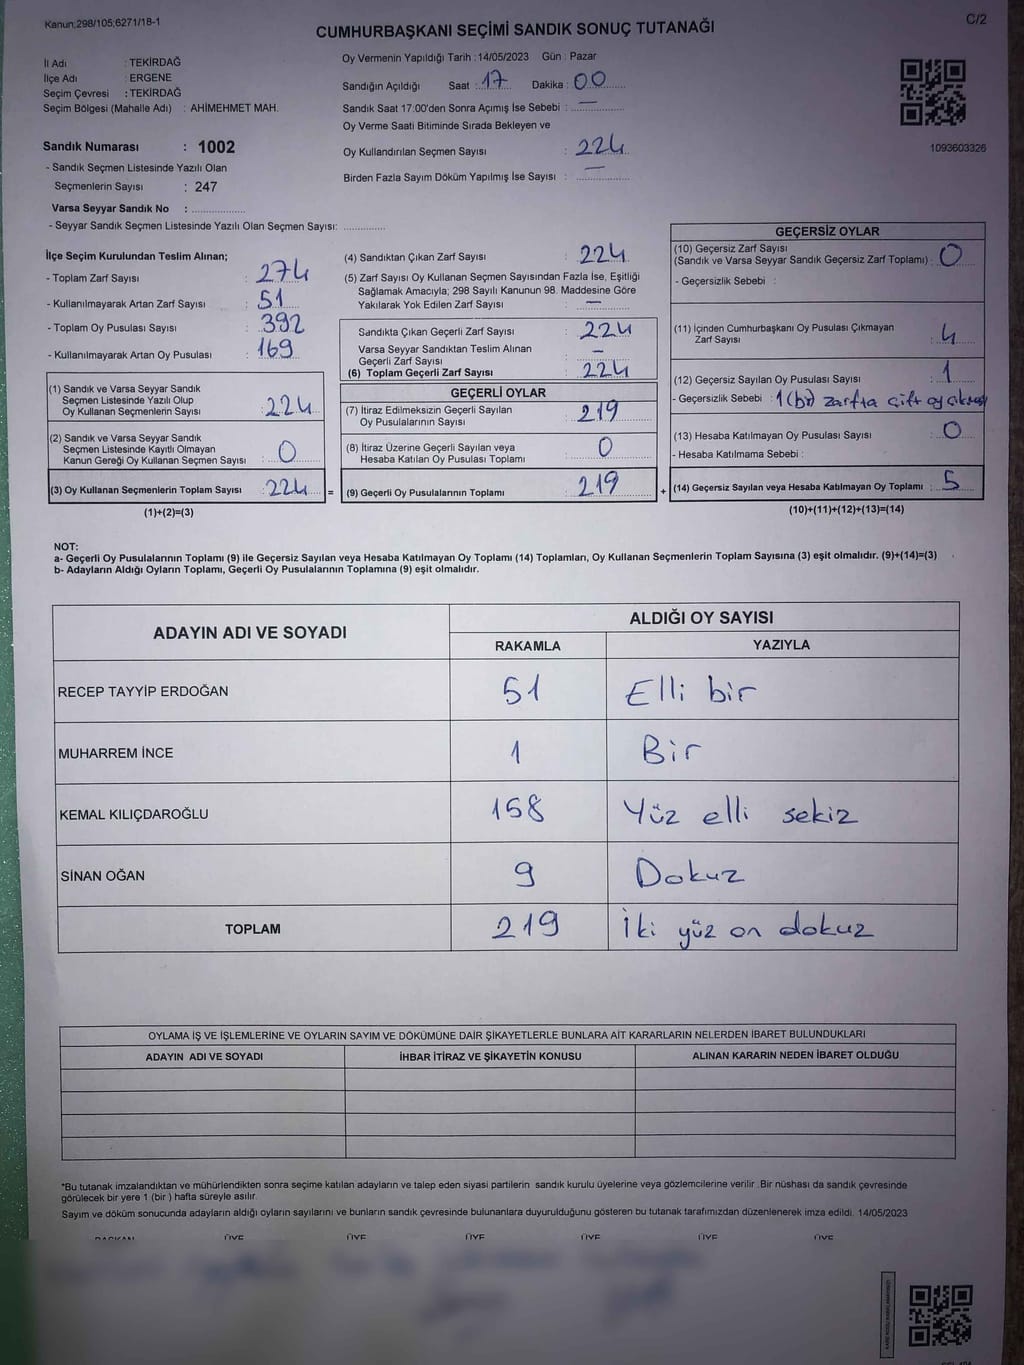 Kanun:298/105;6271/18-1
C/2
CUMHURBAŞKANI SEÇİMİ SANDIK SONUÇ TUTANAĞI
İl Adı : TEKİRDAĞ
İlçe Adı : ERGENE
Seçim Çevresi : TEKİRDAĞ
Seçim Bölgesi (Mahalle Adı) : AHİMEHMET MAH.
Sandık Numarası : 1002
- Sandık Seçmen Listesinde Yazılı Olan
Seçmenlerin Sayısı : 247
Varsa Seyyar Sandık No : ..................
- Seyyar Sandık Seçmen Listesinde Yazılı Olan Seçmen Sayısı: ..............
Oy Vermenin Yapıldığı Tarih : 14/05/2023 Gün : Pazar
Sandığın Açıldığı Saat : 17 Dakika : 00
Sandık Saat 17:00'den Sonra Açımış İse Sebebi : —
Oy Verme Saati Bitiminde Sırada Bekleyen ve
Oy Kullandırılan Seçmen Sayısı : 224
Birden Fazla Sayım Döküm Yapılmış İse Sayısı : —
1093603326
İlçe Seçim Kurulundan Teslim Alınan;
- Toplam Zarf Sayısı : 274
- Kullanılmayarak Artan Zarf Sayısı : 51
- Toplam Oy Pusulası Sayısı : 392
- Kullanılmayarak Artan Oy Pusulası : 169
(1) Sandık ve Varsa Seyyar Sandık
Seçmen Listesinde Yazılı Olup
Oy Kullanan Seçmenlerin Sayısı : 224
(2) Sandık ve Varsa Seyyar Sandık
Seçmen Listesinde Kayıtlı Olmayan
Kanun Gereği Oy Kullanan Seçmen Sayısı : 0
(3) Oy Kullanan Seçmenlerin Toplam Sayısı : 224 =
(1)+(2)=(3)
(4) Sandıktan Çıkan Zarf Sayısı : 224
(5) Zarf Sayısı Oy Kullanan Seçmen Sayısından Fazla İse, Eşitliği
Sağlamak Amacıyla; 298 Sayılı Kanunun 98. Maddesine Göre
Yakılarak Yok Edilen Zarf Sayısı : —
Sandıkta Çıkan Geçerli Zarf Sayısı : 224
Varsa Seyyar Sandıktan Teslim Alınan
Geçerli Zarf Sayısı : —
(6) Toplam Geçerli Zarf Sayısı : 224
GEÇERLİ OYLAR
(7) İtiraz Edilmeksizin Geçerli Sayılan
Oy Pusulalarının Sayısı : 219
(8) İtiraz Üzerine Geçerli Sayılan veya
Hesaba Katılan Oy Pusulası Toplamı : 0
(9) Geçerli Oy Pusulalarının Toplamı : 219 +
GEÇERSİZ OYLAR
(10) Geçersiz Zarf Sayısı
(Sandık ve Varsa Seyyar Sandık Geçersiz Zarf Toplamı) : 0
- Geçersizlik Sebebi :
(11) İçinden Cumhurbaşkanı Oy Pusulası Çıkmayan
Zarf Sayısı : 4
(12) Geçersiz Sayılan Oy Pusulası Sayısı : 1
- Geçersizlik Sebebi : 1 (bir) zarfta çift oy çıkması
(13) Hesaba Katılmayan Oy Pusulası Sayısı : 0
- Hesaba Katılmama Sebebi :
(14) Geçersiz Sayılan veya Hesaba Katılmayan Oy Toplamı : 5
(10)+(11)+(12)+(13)=(14)
NOT:
a- Geçerli Oy Pusulalarının Toplamı (9) ile Geçersiz Sayılan veya Hesaba Katılmayan Oy Toplamı (14) Toplamları, Oy Kullanan Seçmenlerin Toplam Sayısına (3) eşit olmalıdır. (9)+(14)=(3)
b- Adayların Aldığı Oyların Toplamı, Geçerli Oy Pusulalarının Toplamına (9) eşit olmalıdır.
ADAYIN ADI VE SOYADI ALDIĞI OY SAYISI
RAKAMLA YAZIYLA
RECEP TAYYİP ERDOĞAN 51 Elli bir
MUHARREM İNCE 1 Bir
KEMAL KILIÇDAROĞLU 158 Yüz elli sekiz
SİNAN OĞAN 9 Dokuz
TOPLAM 219 İki yüz on dokuz
OYLAMA İŞ VE İŞLEMLERİNE VE OYLARIN SAYIM VE DÖKÜMÜNE DAİR ŞİKAYETLERLE BUNLARA AİT KARARLARIN NELERDEN İBARET BULUNDUKLARI
ADAYIN ADI VE SOYADI İHBAR İTİRAZ VE ŞİKAYETİN KONUSU ALINAN KARARIN NEDEN İBARET OLDUĞU
*Bu tutanak imzalandıktan ve mühürlendikten sonra seçime katılan adayların ve talep eden siyasi partilerin sandık kurulu üyelerine veya gözlemcilerine verilir .Bir nüshası da sandık çevresinde
görülecek bir yere 1 (bir ) hafta süreyle asılır.
Sayım ve döküm sonucunda adayların aldığı oyların sayılarını ve bunların sandık çevresinde bulunanlara duyurulduğunu gösteren bu tutanak tarafımızdan düzenlenerek imza edildi. 14/05/2023
BAŞKAN ÜYE ÜYE ÜYE ÜYE ÜYE ÜYE